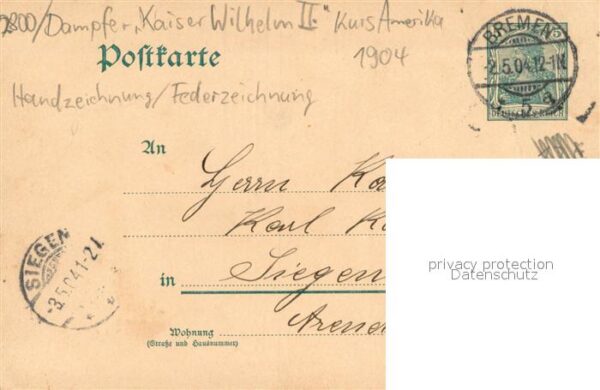 /Dampfer „Kaiser Wilhelm II." Kurs Amerika
1904
Postkarte
Handzeichnung/Federzeichnung
BREMEN
2.5.04.12-1N.
5 a
DEUTSCHES REICH
5
An
Herrn
Karl
in Siegen
SIEGEN
3.5.04.1-2
Wohnung
(Straße und Hausnummer)
privacy protection
Datenschutz